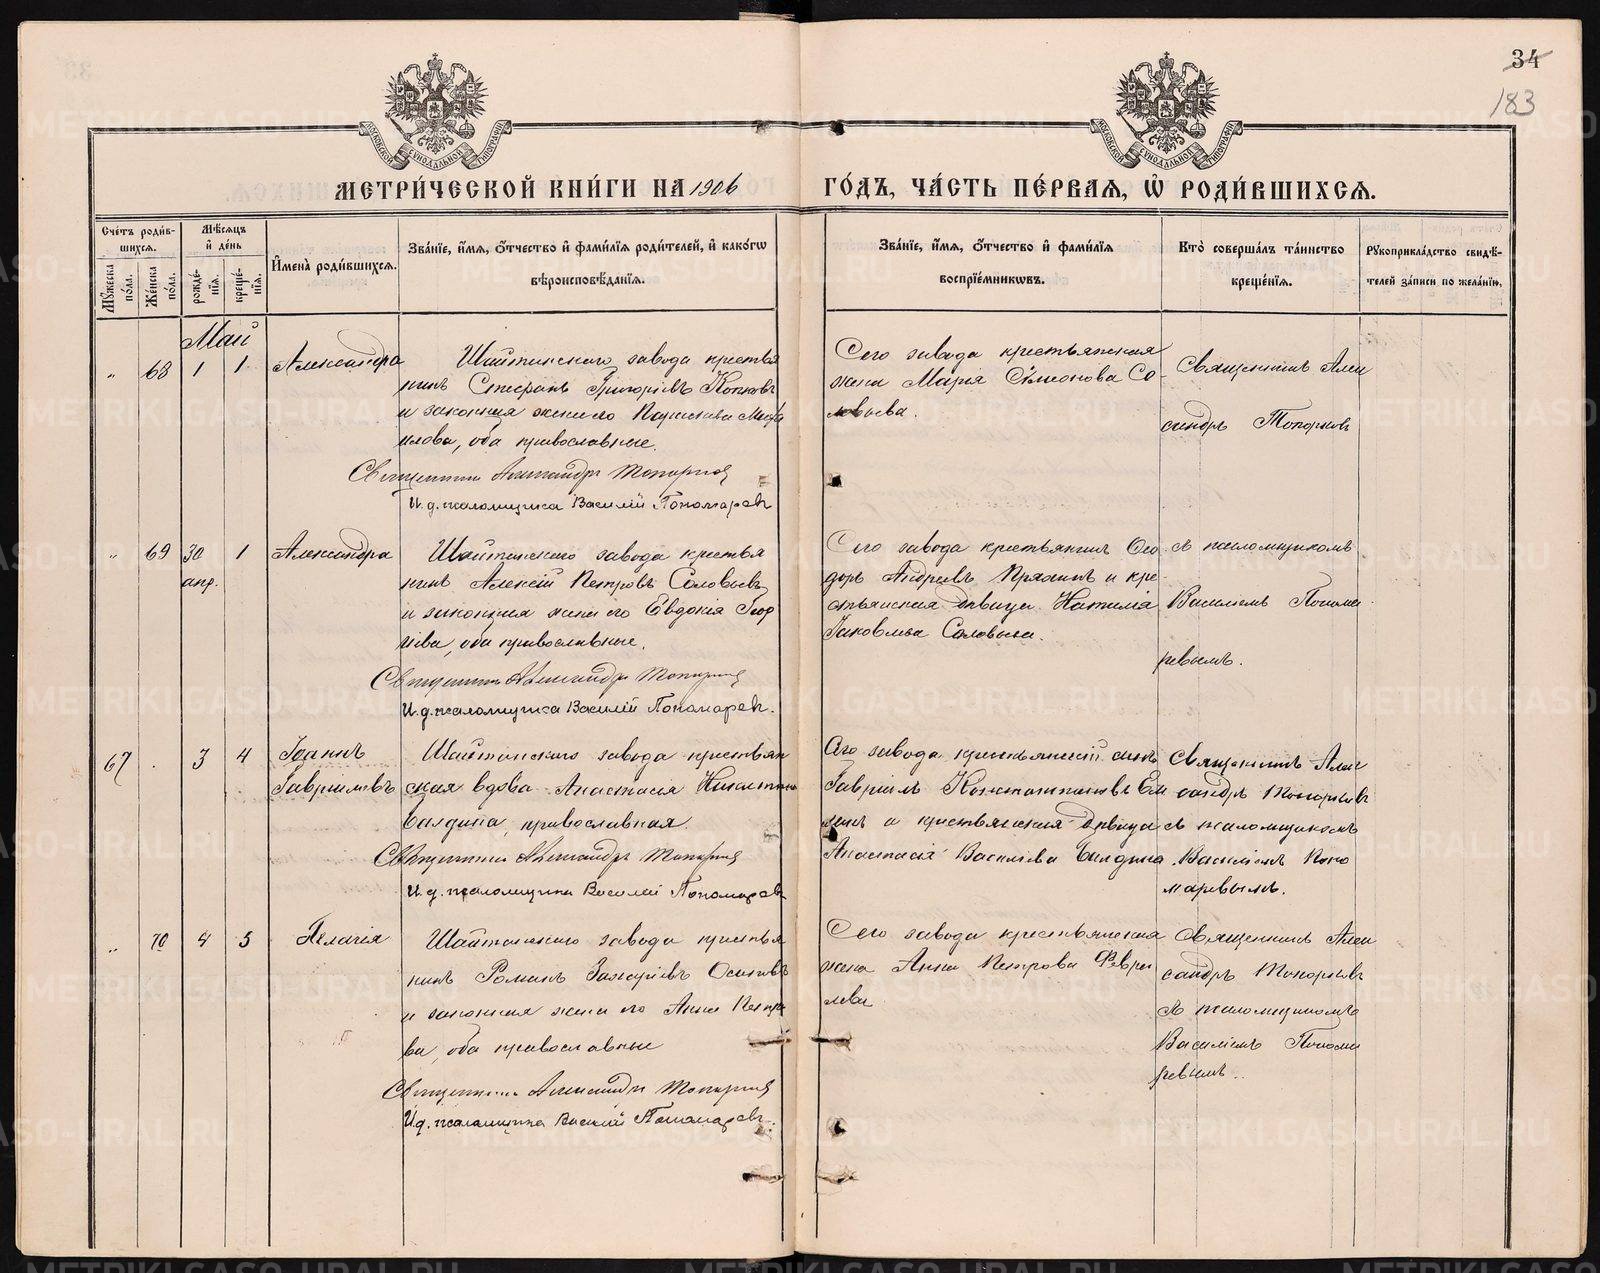 34
183
МОСКОВСКОЙ СѴНОДАЛЬНОЙ ТИПОГРАФІИ
МОСКОВСКОЙ СѴНОДАЛЬНОЙ ТИПОГРАФІИ
МЕТРИ́ЧЕСКОЙ КНИ́ГИ НА 1906 ГО́ДЪ, ЧА́СТЬ ПЕ́РВАѦ, Ѡ҆ РОДИ́ВШИХСѦ.
Сче́тъ роди́в-
шихсѧ.
Мꙋ́жеска по́ла.
Же́нска по́ла.
Мѣ́сѧцъ и҆ де́нь
рожде́-
нїѧ.
креще́-
нїѧ.
И҆мена̀ роди́вшихсѧ.
Зва́нїе, и҆́мѧ, ѻ҆́тчество и҆ фами́лїѧ роди́телей, и҆ како́гѡ
вѣроисповѣ́данїѧ.
Зва́нїе, и҆́мѧ, ѻ҆́тчество и҆ фами́лїѧ
воспрїе́мникѡвъ.
Кто̀ соверша́лъ та́инство
креще́нїѧ.
Рꙋкоприкла́дство свидѣ́-
телей за́писи по жела́нїю.
Май
„ 68 1 1 Александра
Шайтанскаго завода крестья
нинъ Стефанъ Григорьевъ
и законная жена его Параскева
илова, оба православные.
Священникъ Александръ Топорковъ
И. д. псаломщика Василій Пономаревъ
Сего завода крестьянская
жена Марія Сѵмеонова Со-
ловьева.
Священникъ Алек
сандръ Топорковъ
„ 69 30 1 Александра
апр.
Шайтанскаго завода крестья
нинъ Алексій Петровъ Соловьевъ
и законная жена его Евдокія Геор
гіева, оба православные.
Священникъ Александръ Топорковъ
И. д. псаломщика Василій Пономаревъ.
Сего завода крестьянинъ Ѳео
доръ Андреевъ Пряхинъ и кре-
стьянская дѣвица Наталія
Іаковлева Соловьева.
съ псаломщикомъ
Василіемъ Понома
ревымъ.
67 . 3 4 Іоаннъ
Гавріиловъ
Шайтанскаго завода крестьян
ская вдова Анастасія Никитина
Балдина, православная.
Священникъ Александръ Топорковъ
И. д. псаломщика Василій Пономаревъ
Сего завода крестьянскій сынъ
Гавріилъ Константиновъ Ем
и крестьянская дѣвица
Анастасія Василіева Балдина
Священникъ Алек
сандръ Топорковъ
съ псаломщикомъ
Василіемъ Поно
маревымъ.
„ 70 4 5 Пелагія
Шайтанскаго завода крестья
нинъ Романъ Захаріевъ Осиповъ
и законная жена его Анна Петро
ва, оба православные
Священникъ Александръ Топорковъ
И. д. псаломщика Василій Пономаревъ.
Сего завода крестьянская
жена Анна Петрова Февра
лева
Священникъ Алек
сандръ Топорковъ
съ псаломщикомъ
Василіемъ Понома
ревымъ.
METRIKI.GASO-URAL.RU